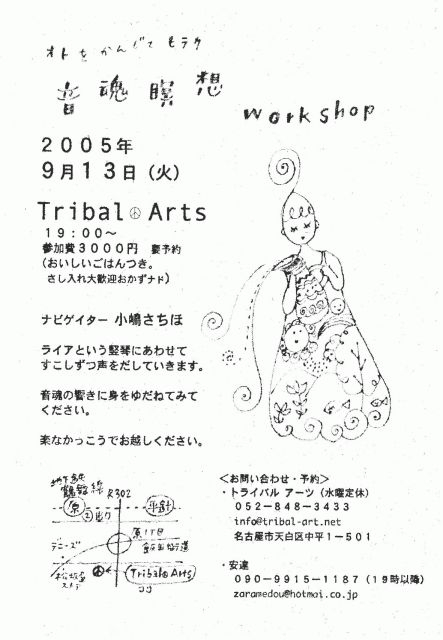 オトをかんじて
音魂瞑想
workshop
２００５年
９月１３日（火）
Tribal Arts
１９：００～
参加費３０００円 要予約
（おいしいごはんつき。
さし入れ大歓迎おかずナド）
ナビゲイター 小嶋さちほ
ライアという竪琴にあわせて
すこしずつ声をだしていきます。
音魂の響きに身をゆだねてみて
ください。
楽なかっこうでお越しください。
地下鉄
鶴舞線
R302
原
②出口
平針
原1丁目
デニーズ
飯田街道
松坂屋
ストア
Tribal Arts
＜お問い合わせ・予約＞
・トライバル アーツ（水曜定休）
０５２－８４８－３４３３
info@tribal-art.net
名古屋市天白区中平１－５０１
・安達
０９０－９９１５－１１８７（１９時以降）
zaramedou@hotmai.co.jp